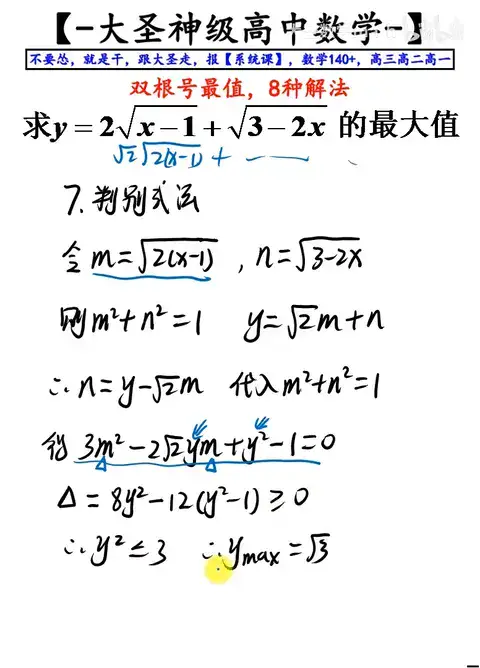 【-大圣神级高中数学-】
不要怂，就是干，跟大圣走，报【系统课】，数学140+，高三高二高一
双根号最值，8种解法
求y=2√(x-1)+√(3-2x) 的最大值
√2√(2(x-1)) +
7、判别式法
令 m=√(2(x-1)) , n=√(3-2x)
则m²+n²=1 y=√2m+n
∴n=y-√2m 代入m²+n²=1
得 3m²-2√2ym+y²-1=0
Δ=8y²-12(y²-1)≥0
∴y²≤3 ∴y_max=√3